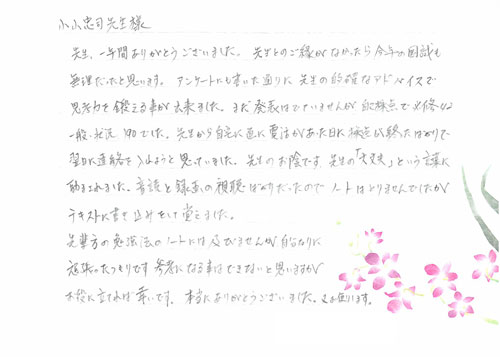 小山忠司先生様
先生、一年間ありがとうございました。先生とのご縁がなかったら今年の国試も
無理だったと思います。アンケートにも書いた通りに先生の的確なアドバイスで
思考力を鍛える事が出来ました。まだ発表はでていませんが自己採点で必修42
一般・状況190でした。先生から自宅に直に電話があった日に採点し終ったばかりで
翌日に連絡を入れようと思っていました。先生のお陰です。先生の「大丈夫」という言葉に
助けられました。音読と録画の視聴ばかりだったのでノートはとりませんでしたが
テキストに書き込みをして覚えました。
先輩方の勉強法のノートには及びませんが自分なりに
頑張ったつもりです参考になる事はできないと思いますが
お役に立てれば幸いです。本当にありがとうございました。